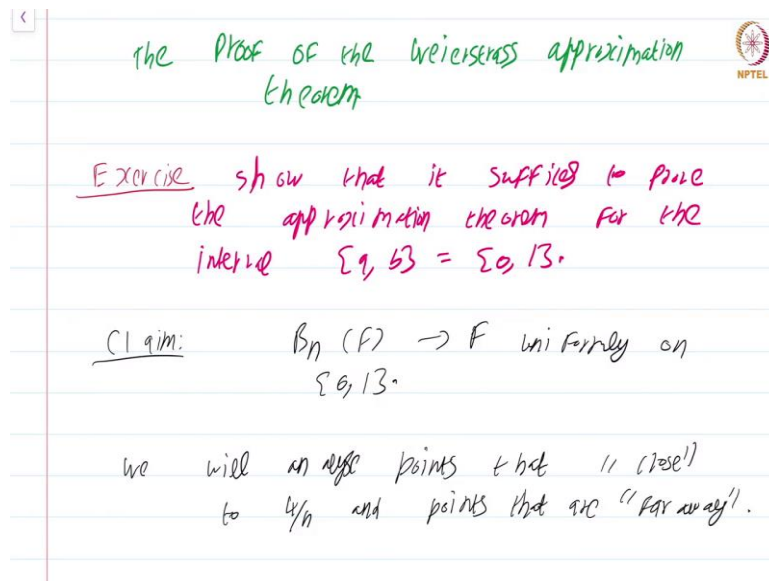 The Proof of the Weierstrass approximation
theorem
NPTEL
Exercise show that it suffices to prove
the approximation theorem for the
interval [a, b] = [0, 1].
Claim: Bn (F) → F uniformly on
[0, 1].
we will analyse points that "close"
to k/n and points that are "far away".